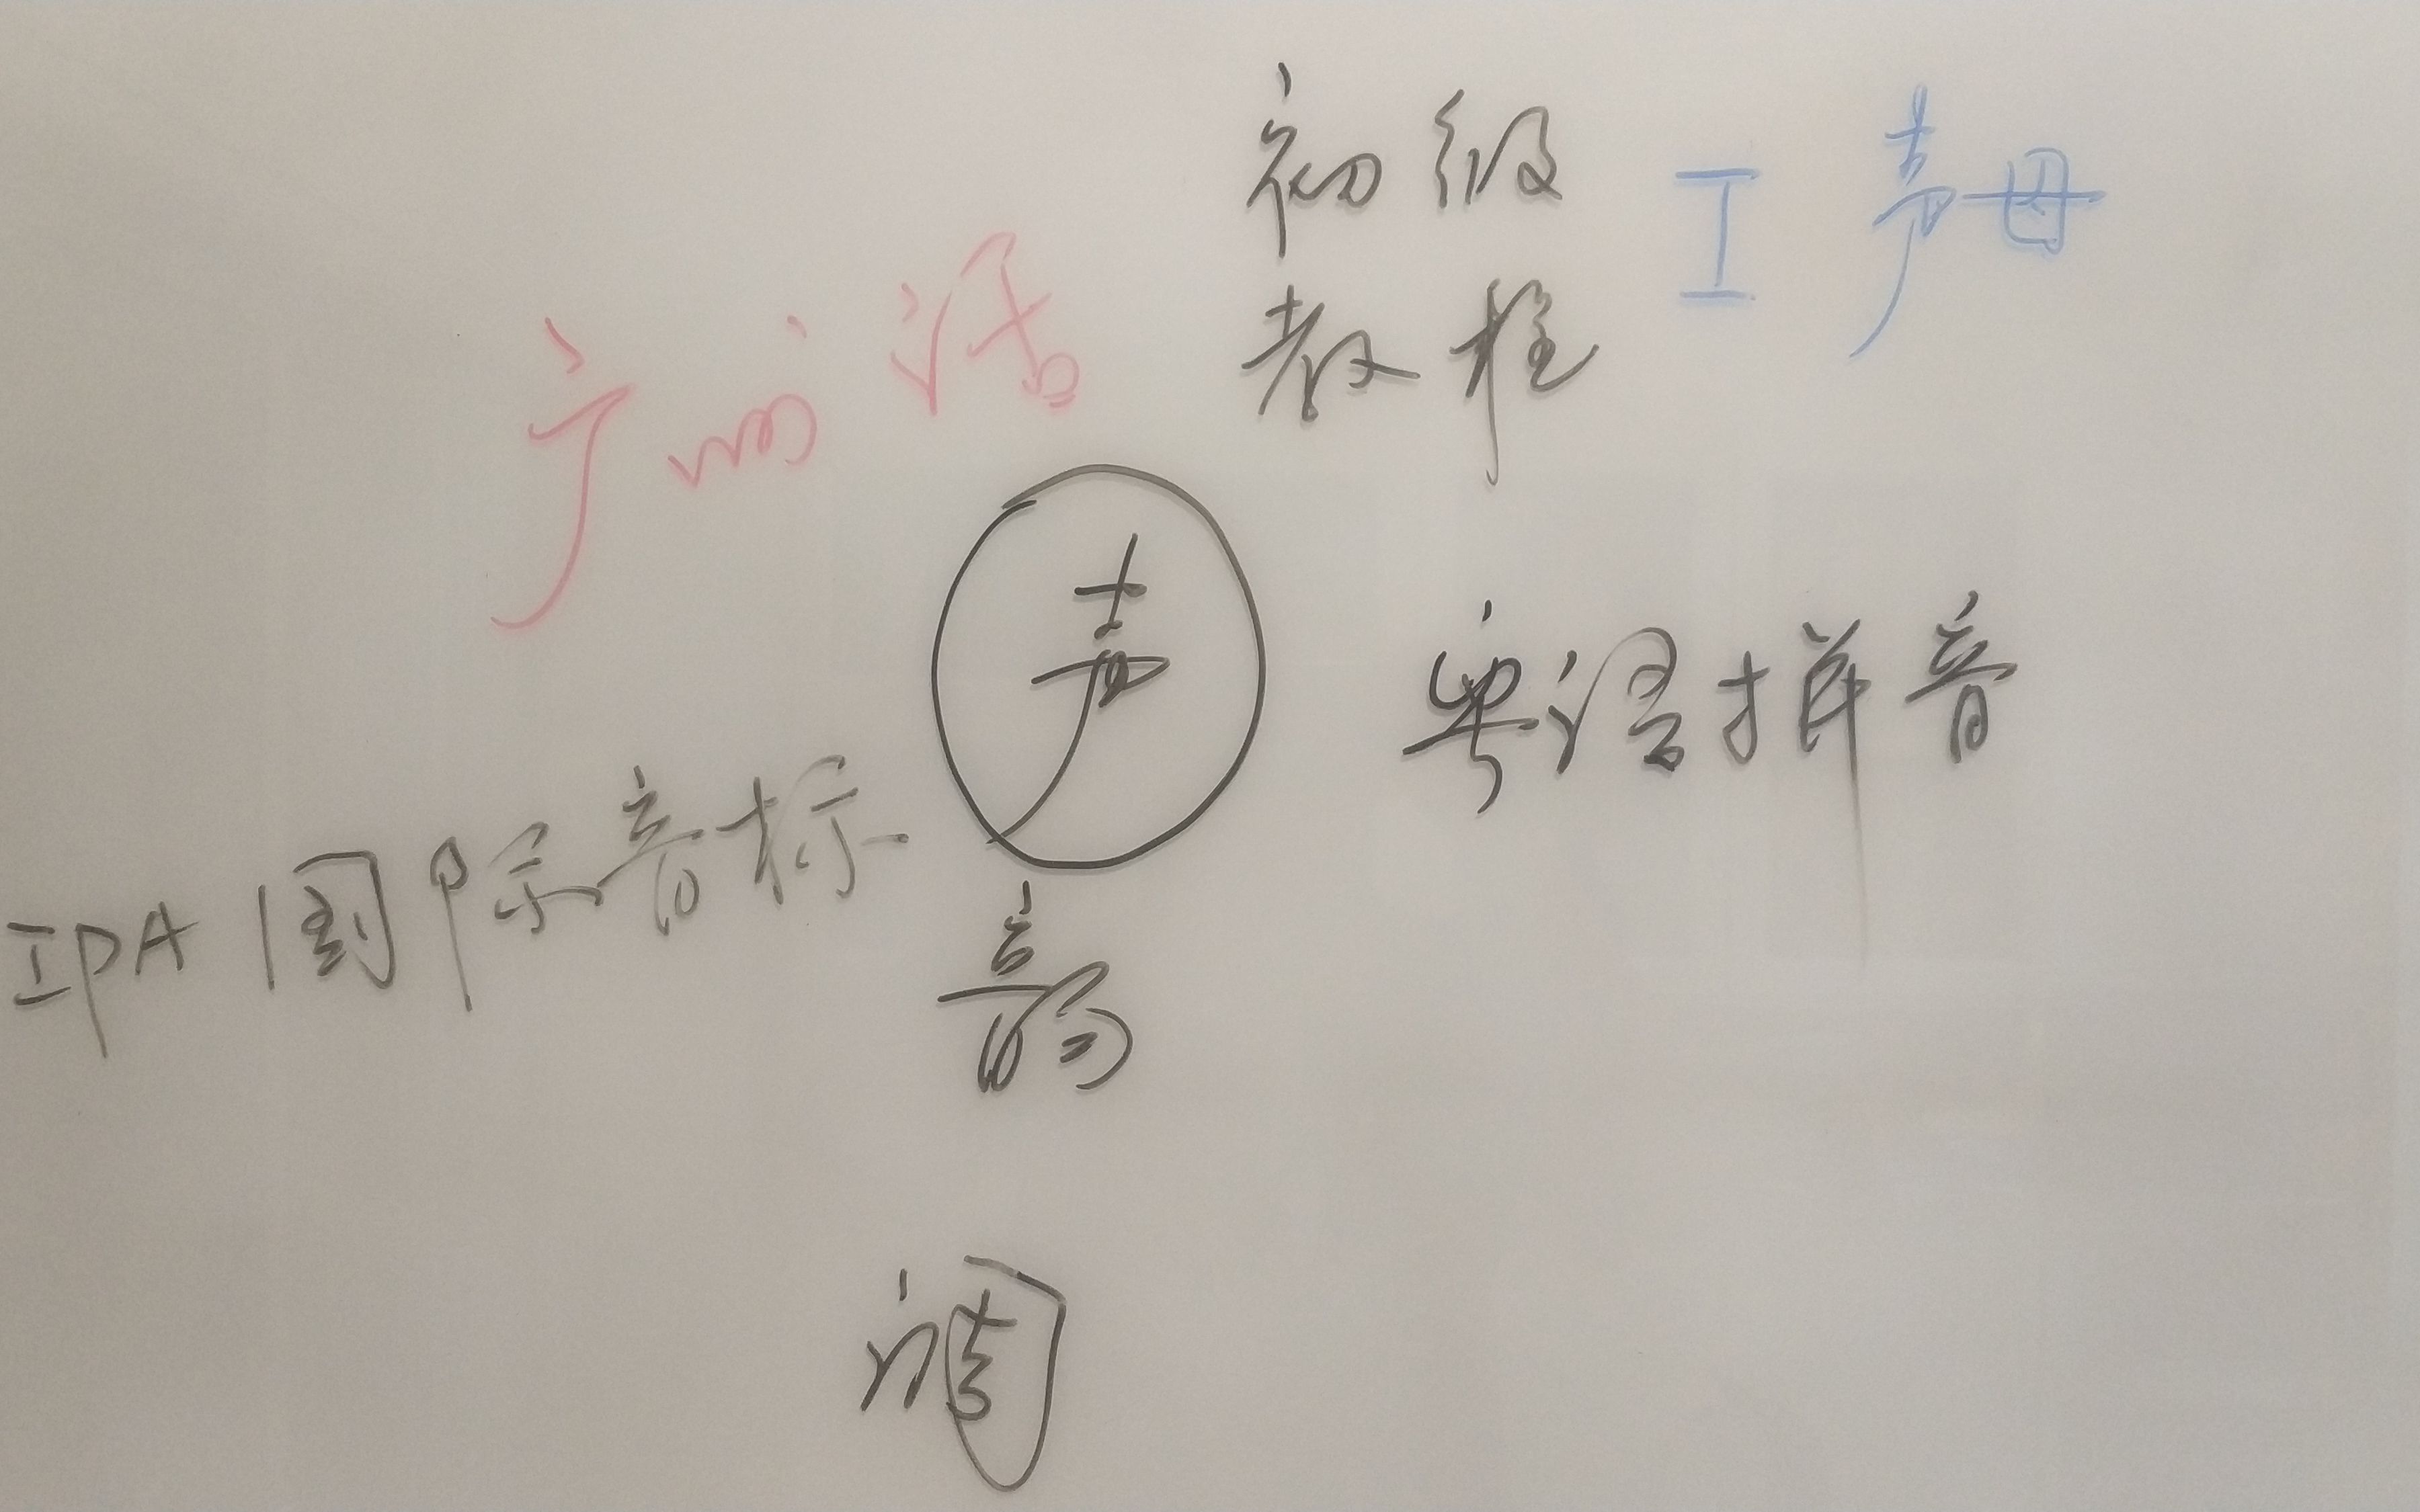 广州话
初级
教程
I 声母
声
粤语拼音
IPA 国际音标
韵
调